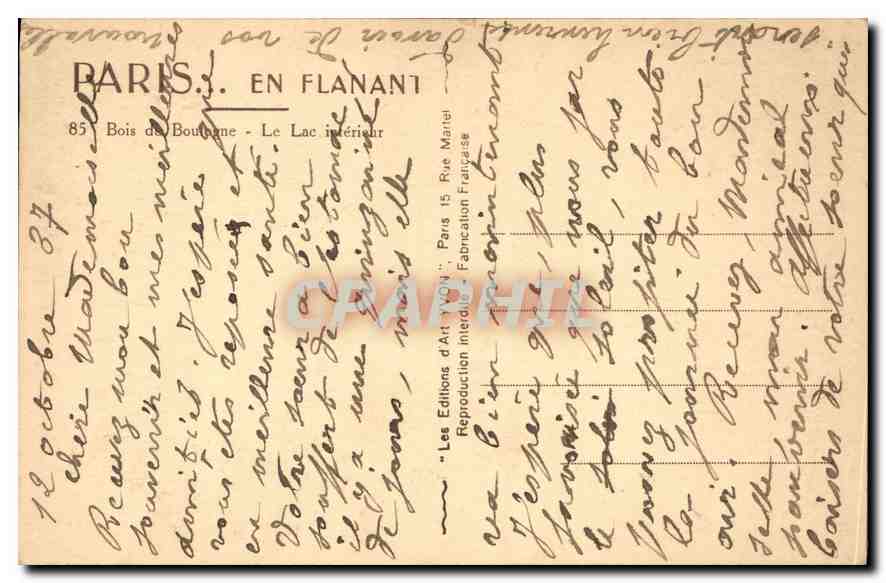 PARIS... EN FLANANT
85 Bois de Boulogne - Le Lac intérieur
12 octobre 37
Chère Mademoiselle
Recevez mon bon
souvenir et mes meilleures
amitiés. J'espère que
vous êtes reposée et
en meilleure santé.
Votre sœur a bien
souffert de l'estomac
il y a une quinzaine
de jours, mais elle
"Les Editions d'Art YVON", Paris 15 Rue Martel
Reproduction Interdite Fabrication Française
va bien maintenant
J'espère que, plus
favorisée que nous par
le soleil, vous
pouvez profiter toute
la journée du bon
air. Recevez, Mademoi
selle, mon amical
souvenir. Affectueux
baisers de votre sœur qui
serait bien heureuse d'avoir de vos nouvelles
CPAPHIL